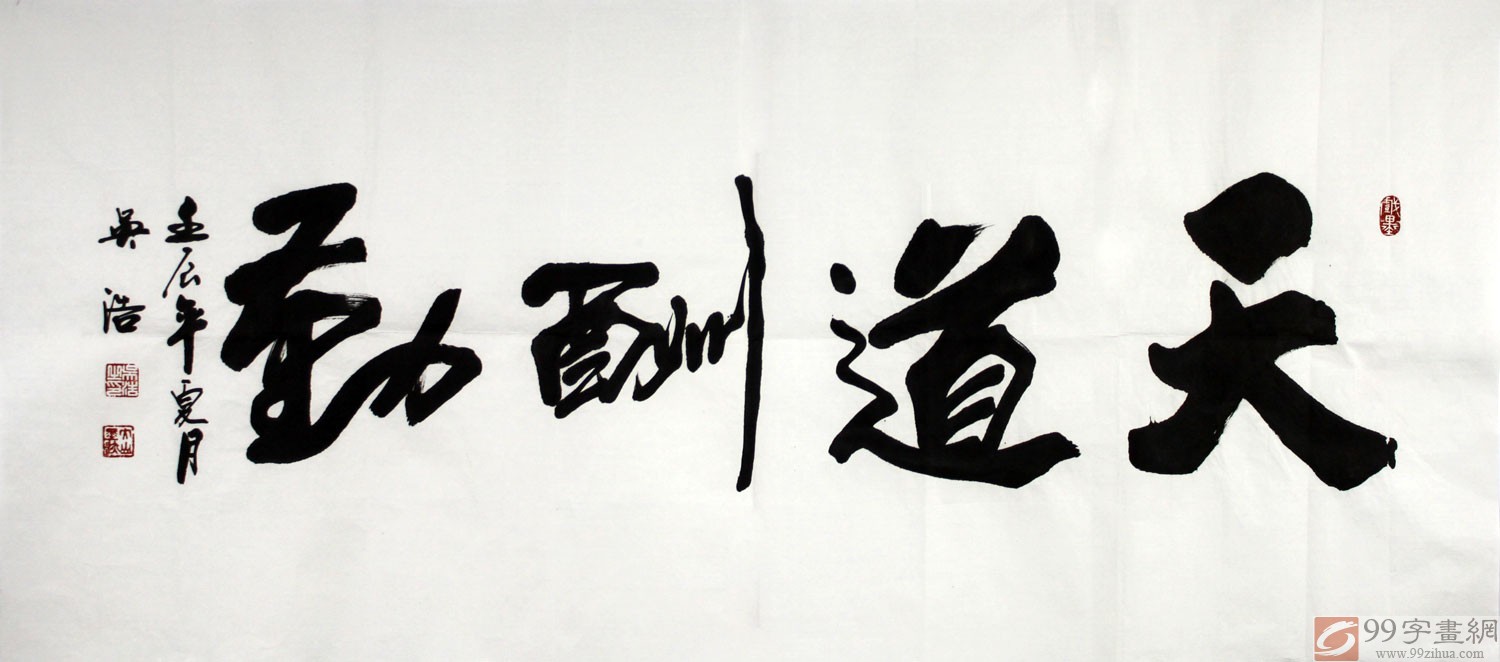 天道酬勤
壬辰年夏月
吳浩
戲墨
99字畫網
www.99zihua.com